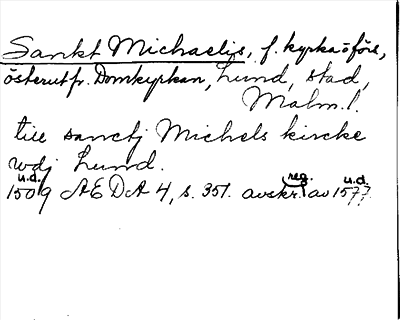 Sankt Michaelis, f. kyrka o förs,
österut fr. Domkyrkan, Lund, stad,
Malm. l.
till sanctj Michels kircke
wdj Lund.
u.d. reg. u.d.
1509 AEDA 4, s. 351. avskr. av 1577.